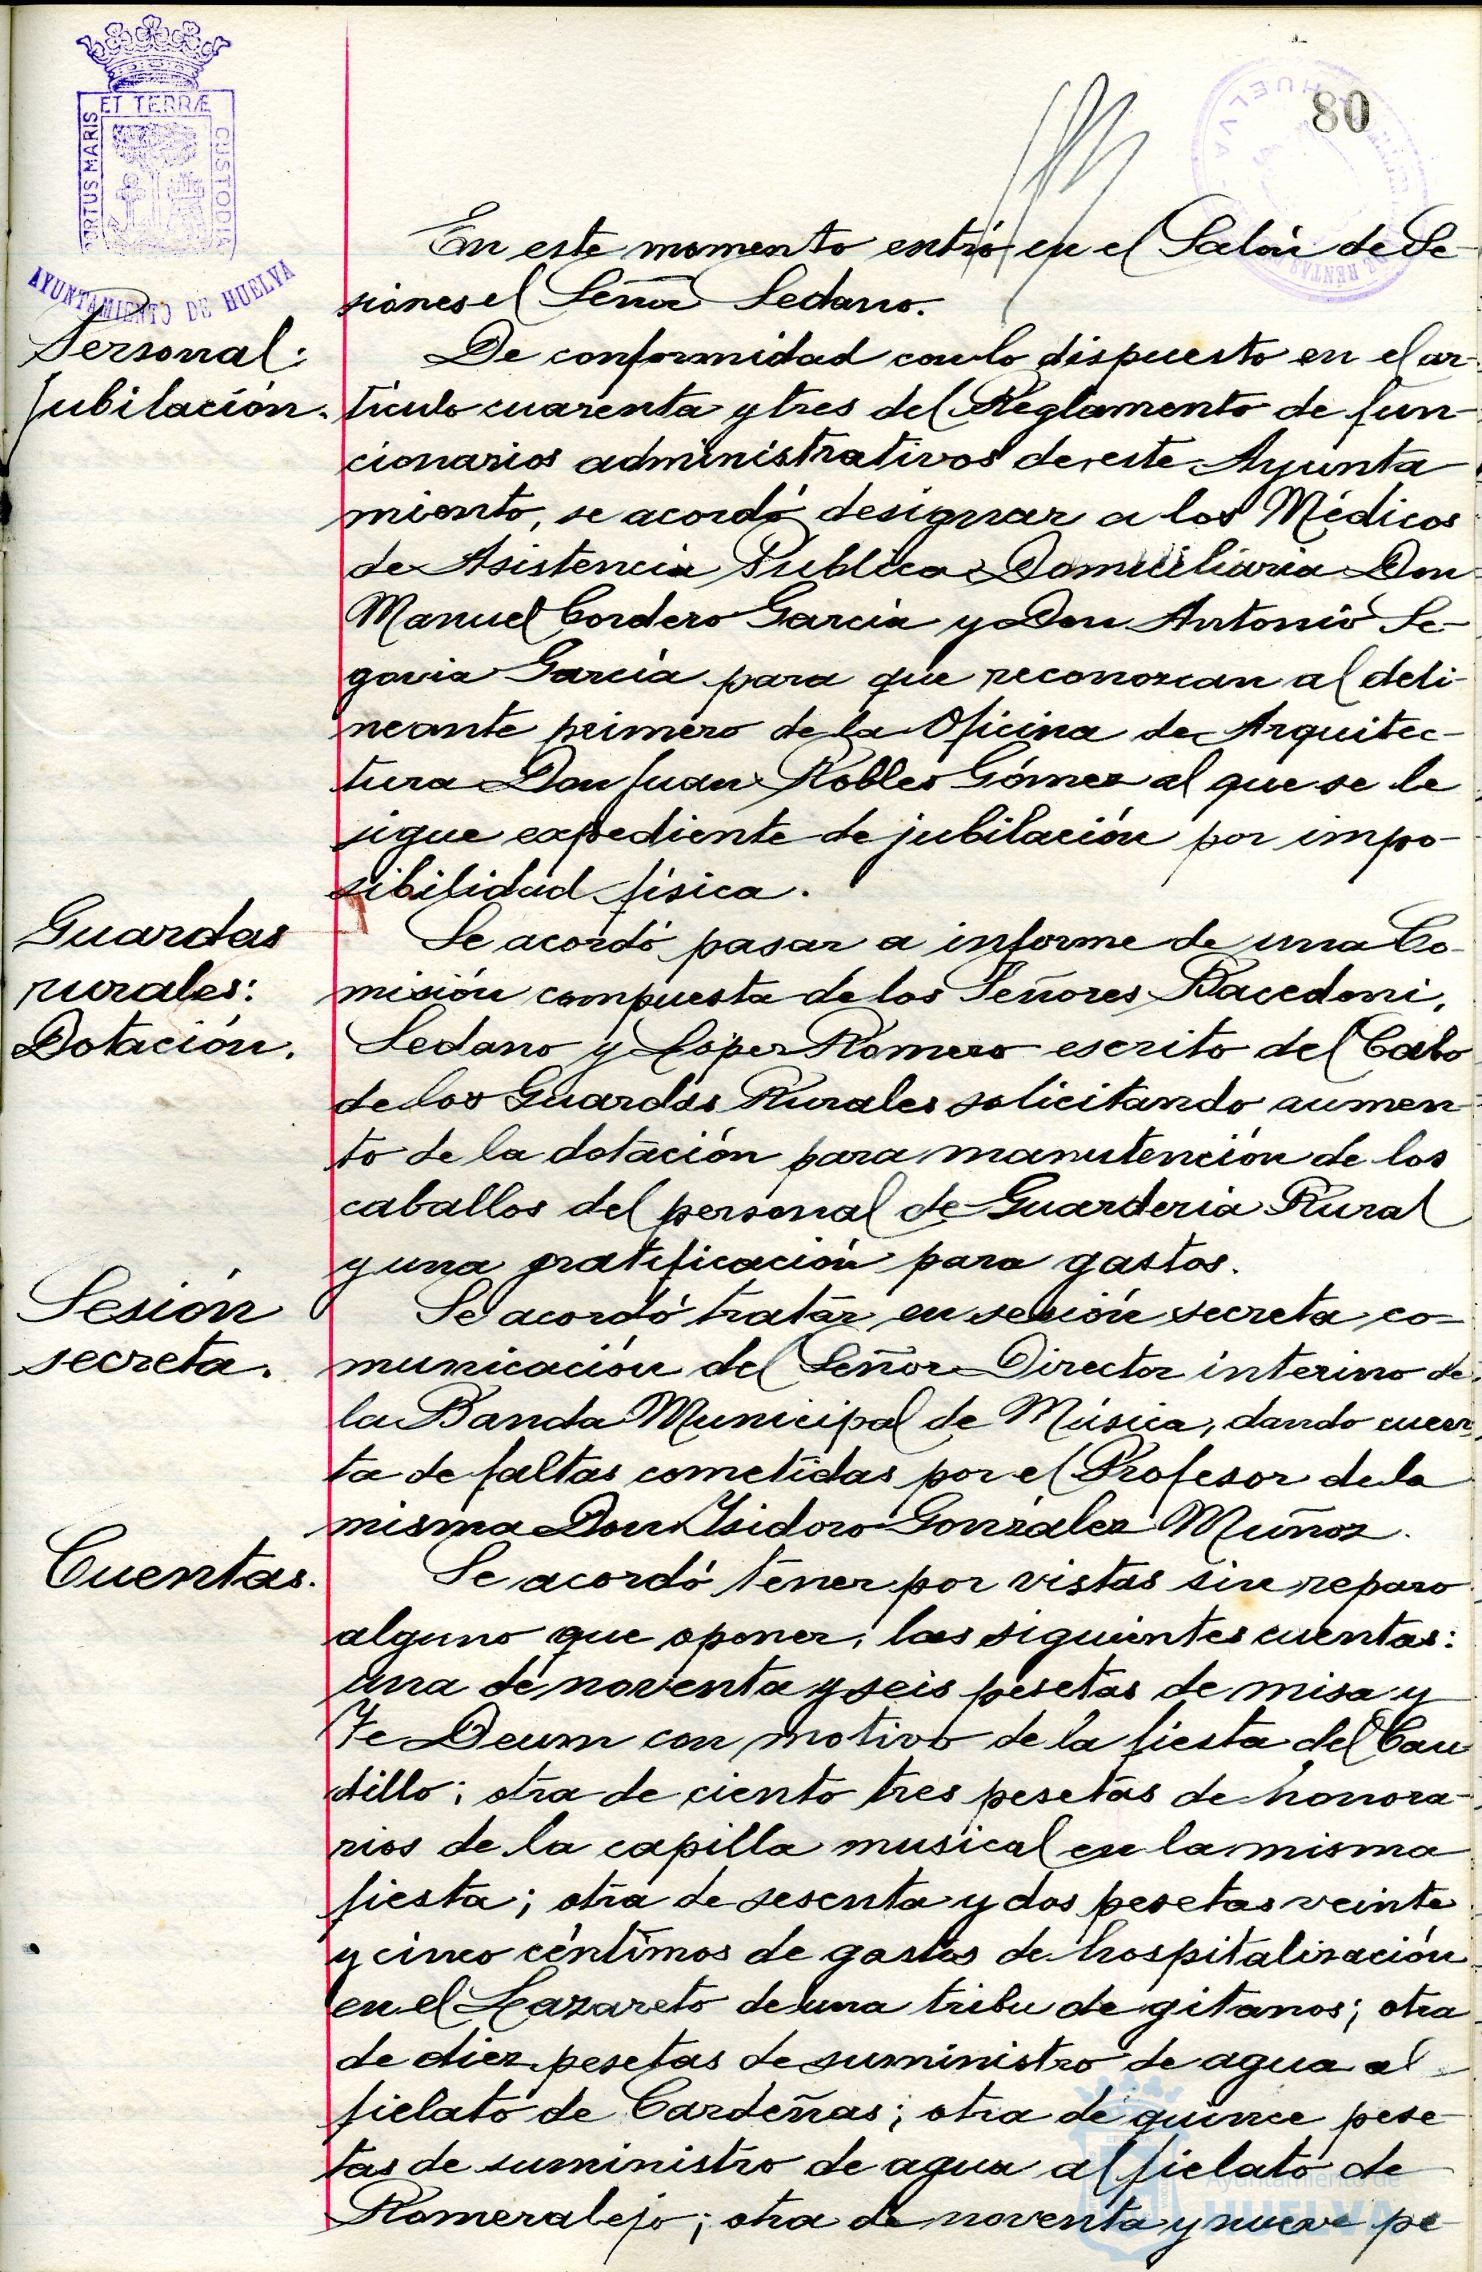 ET TERRÆ
PORTUS MARIS
CUSTODIA
AYUNTAMIENTO DE HUELVA
80
En este momento entró en el Salón de Se-
siones el Señor Sedano.
Personal:
Jubilación.
De conformidad con lo dispuesto en el ar-
tículo cuarenta y tres del Reglamento de fun-
cionarios administrativos de este Ayunta
miento, se acordó designar a los Médicos
de Asistencia Publica Domiciliaria Don
Manuel Cordero García y Don Antonio Se-
govia García para que reconozcan al deli-
neante primero de la Oficina de Arquitec-
tura Don Juan Robles Gómez al que se le
sigue expediente de jubilación por impo-
sibilidad física.
Guardas
rurales:
Dotación.
Se acordó pasar a informe de una Co-
misión compuesta de los Señores Bacedoni,
Sedano y López Romero escrito del Cabo
de los Guardas Rurales solicitando aumen-
to de la dotación para manutención de los
caballos del personal de Guardería Rural
y una gratificación para gastos.
Sesión
secreta.
Se acordó tratar en sesión secreta co-
municación del Señor Director interino de
la Banda Municipal de Música, dando cuen-
ta de faltas cometidas por el Profesor de la
misma Don Isidoro González Muñoz.
Cuentas.
Se acordó tener por vistas sin reparo
alguno que oponer, las siguientes cuentas:
una de noventa y seis pesetas de misa y
Te Deum con motivo de la fiesta del Cau
dillo; otra de ciento tres pesetas de honora-
rios de la capilla musical en la misma
fiesta; otra de sesenta y dos pesetas veinte
y cinco céntimos de gastos de hospitalización
en el Lazareto de una tribu de gitanos; otra
de diez pesetas de suministro de agua al
fielato de Cardeñas; otra de quince pese-
tas de suministro de agua al fielato de
Romeralejo; otra de noventa y nueve pe-
Ayuntamiento de
HUELVA